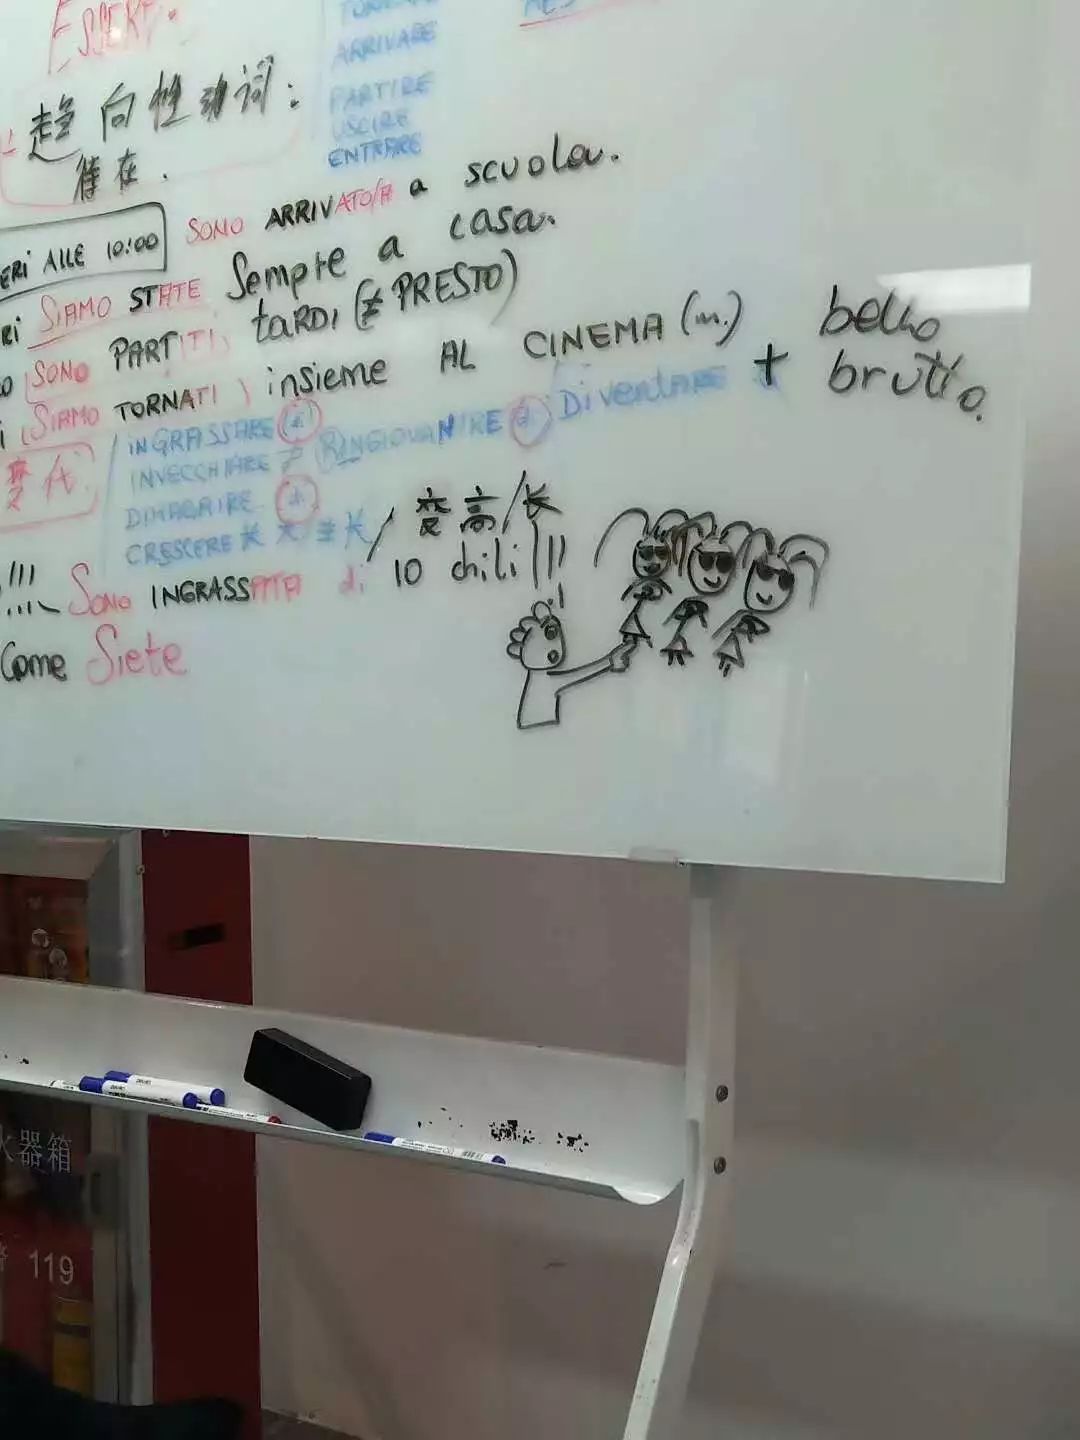 ESSERE:
ARRIVARE
PARTIRE
USCIRE
ENTRARE
趋向性动词:
待在.
ERI ALLE 10:00 SONO ARRIVATO/A a scuola.
RI SIAMO STATE Sempre a casa.
O SONO PARTITI tARDI (≠ PRESTO)
i SIAMO TORNATI insieme AL CINEMA (m.)
变化
INGRASSARE di
INVECCHIARE ≠ RINGIOVANIRE di Diventare + bello
brutto.
DIMAGRIRE di
CRESCERE 长大 生长 / 变高/长
!!! Sono INGRASSATA di 10 chili!!!
Come Siete
火器箱
警 119